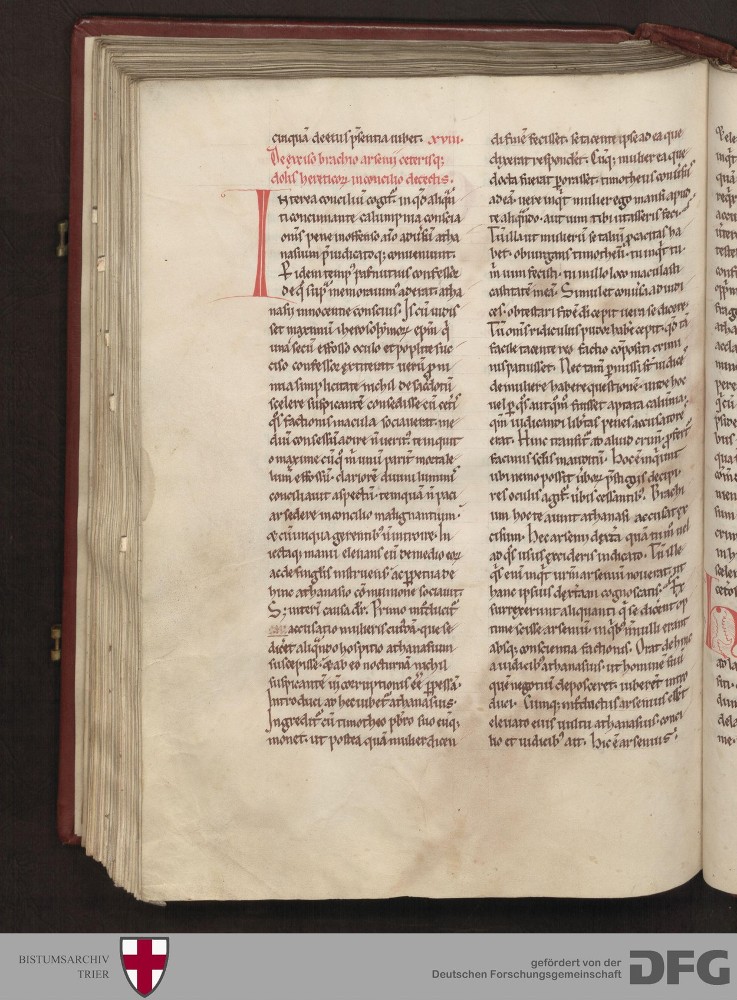 cinquā detẽtus p̃sentia iubet. xviii.
De exciso brachio arsenii ceterisq;
dolis hereticoꝝ in concilio detectis.
Interea conciliū cogit̃. in q̊d aliq̃nti
ti concinnante calumpnia conscia
om̃is pene in offenso aīo aduersū atha
nasium p̃iudicatoq; conueniunt.
Per idem temp᷒ pafnutius confessor
de q̊ sup᷒ memorauim᷒ aderat. atha
nasij innocentie conscius. Is cū uidis
set maximū iherosolimoꝝ ep̃m q̓
una secū effosso oculo et poplite suc
ciso confessor extiterat. uerū p̱ ni
mia simplicitate nichil de sacdotū
scelere suspicantē consedisse cū cet̃is
q̊s factionis macula sociauerat. me
diū consessū adire ñ ueritꝰ. te inquit
o maxime cū q̊ m̃ unū parit̃ mortale
lum̃ effossū. clariorē diuini luminis
conciliauit aspectū. te inquā ñ paci
ar sedere in concilio malignantium.
⁊ cū iniqua gerentib᷒ ñ introire. In
iectaq; manu eleuans eū de medio eoꝝ
ac de singl̃is instruens. ac perpetua de
hinc athanasio cōmunione sociauit.
S; interī causa d̃r. Primo inducit̃
accusatio mulieris cui᷒dā. que se
dic̃et aliq̃ndo hospitio athanasium
suscepisse. ⁊ ab eo nocturna nichil
suspicantē uī corruptionis eē p̱pessā.
Introduci ad hec iubet̃ athanasius.
Ingredit̃ cū timotheo p̃bro suo eūq;
monet. ut postea quā mulier dicen
di finē fecisset. se tacente ipse ad ea que
dixerat responderet. Cūq; mulier ea que
docta fuerat p̱orasset. timotheus conuersus
ad eā. uere inq̓t mulier ego mansi apud
te aliq̃ndo. aut uim tibi ut asseris feci.
Tū illa ut mulierū se taliū p̱cacitas ha
bet. obiurgans timotheū. tu inq̓t tu
m̃ uim fecisti. tu in illo loco maculasti
castitatē meā. Simul et conuersa ad iudi
ces. obtestari fidē dī cepit uera se dicere.
Tū om̃is ridiculus pudor habere cepit. q̊d tā
facile tacente reo factio cōpositi crimi
nis patuisset. Nec tam̃ p̱missū ſt̃ iudicib᷒
de muliere habere questionē. unde hoc
uel p̱ q̊s aut q̊m᷒ fuisset aptata calūnia.
q̃m iudicandi lib̃tas penes accusatores
erat. Hinc transit̃ ad aliud crim̃. p̱fert̃
facinus sc̃lis inauditū. Hoc ē inquiunt
ubi nemo possit ũboꝝ p̃stigiis decipi.
res oculis agit̃. ũbis cessantib᷒. Brachi
um hoc te aiunt athanasi accusat ex
cisum. Hec arsenii dext̃a quā tu m̃ uel
ad q̊s usus excideris indicato. Tū ille.
q̊s enī inq̓t ur̃m arseniū nouerat. ut
hanc ipsius dext̃am cognoscatis. Ex
surrexerunt aliquanti q̓ se dicer̃ent op
time scisse arseniū. in q̓b᷒ nōnulli erant
absq; conscientia factionis. Orat de hinc
a iudicib᷒ athanasius. ut hominē suū
quē negotiū deposceret. iuberent intro
duci. Cumq; int̃ductus arsenius esset.
eleuato eius uultu athanasius. conci
lio et iudicib᷒ ait. Hic ē arsenius.
BISTUMSARCHIV
TRIER
gefördert von der
Deutschen Forschungsgemeinschaft
DFG